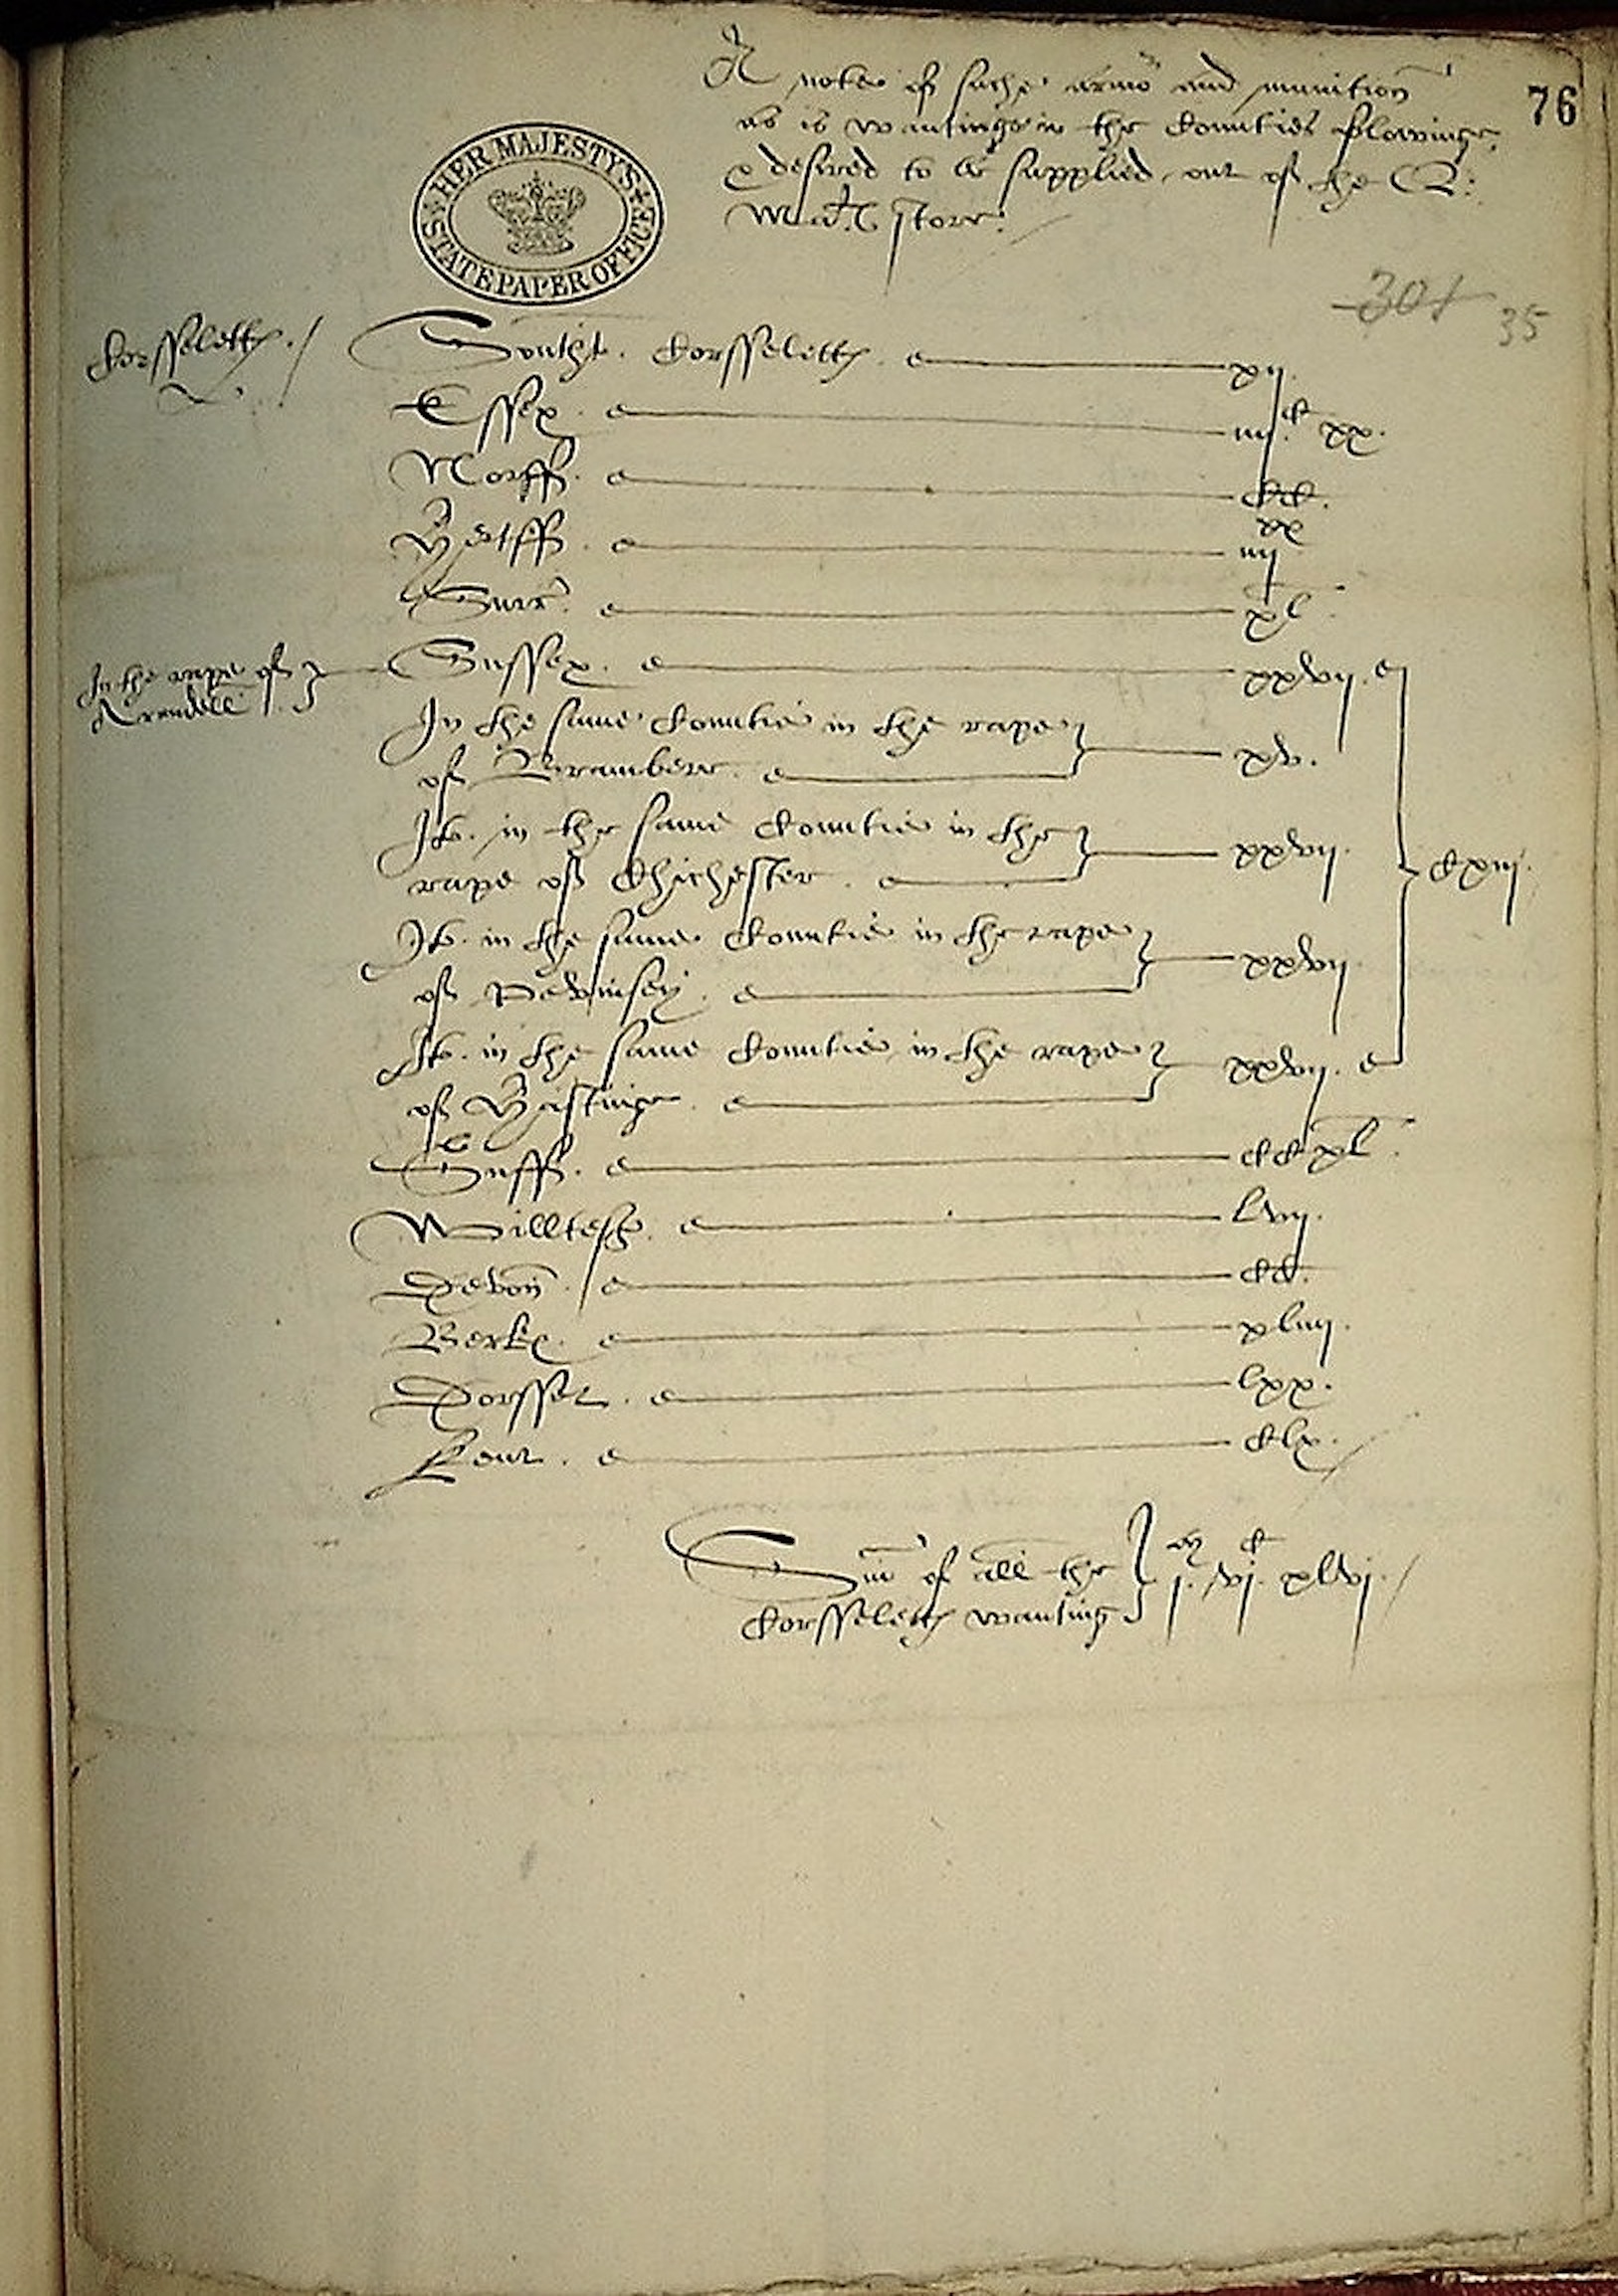 76
A note of suche armor and munition
as is wantinge in the Counties folowinge,
& desired to be supplied out of the Q:
Ma.ts store.
HER MAJESTY'S
STATE PAPER OFFICE
301 35
Corsseletts. Southt. Corsseletts. xij.
Essex. iiij.c xx.
Norff. CC.
Hertff. iiij xx
Surr. xl.
In the rape of Arundell. Sussex. xxvij.
In the same Countie in the rape
of Bramber. xv.
It. in the same Countie in the
rape of Chichester. xxvij. cxiij.
It. in the same Countie in the rape
of Pevinsey. xxvij.
It. in the same Countie in the rape
of Hastinge. xxvij.
Suff. CCxl.
Willtesh. lvij.
Devon. CC.
Berk. xliiij.
Dorsset. lxx.
Kent. Clx.
Sum of all the
Corsseletts wanting j.m vj.c xlvj.